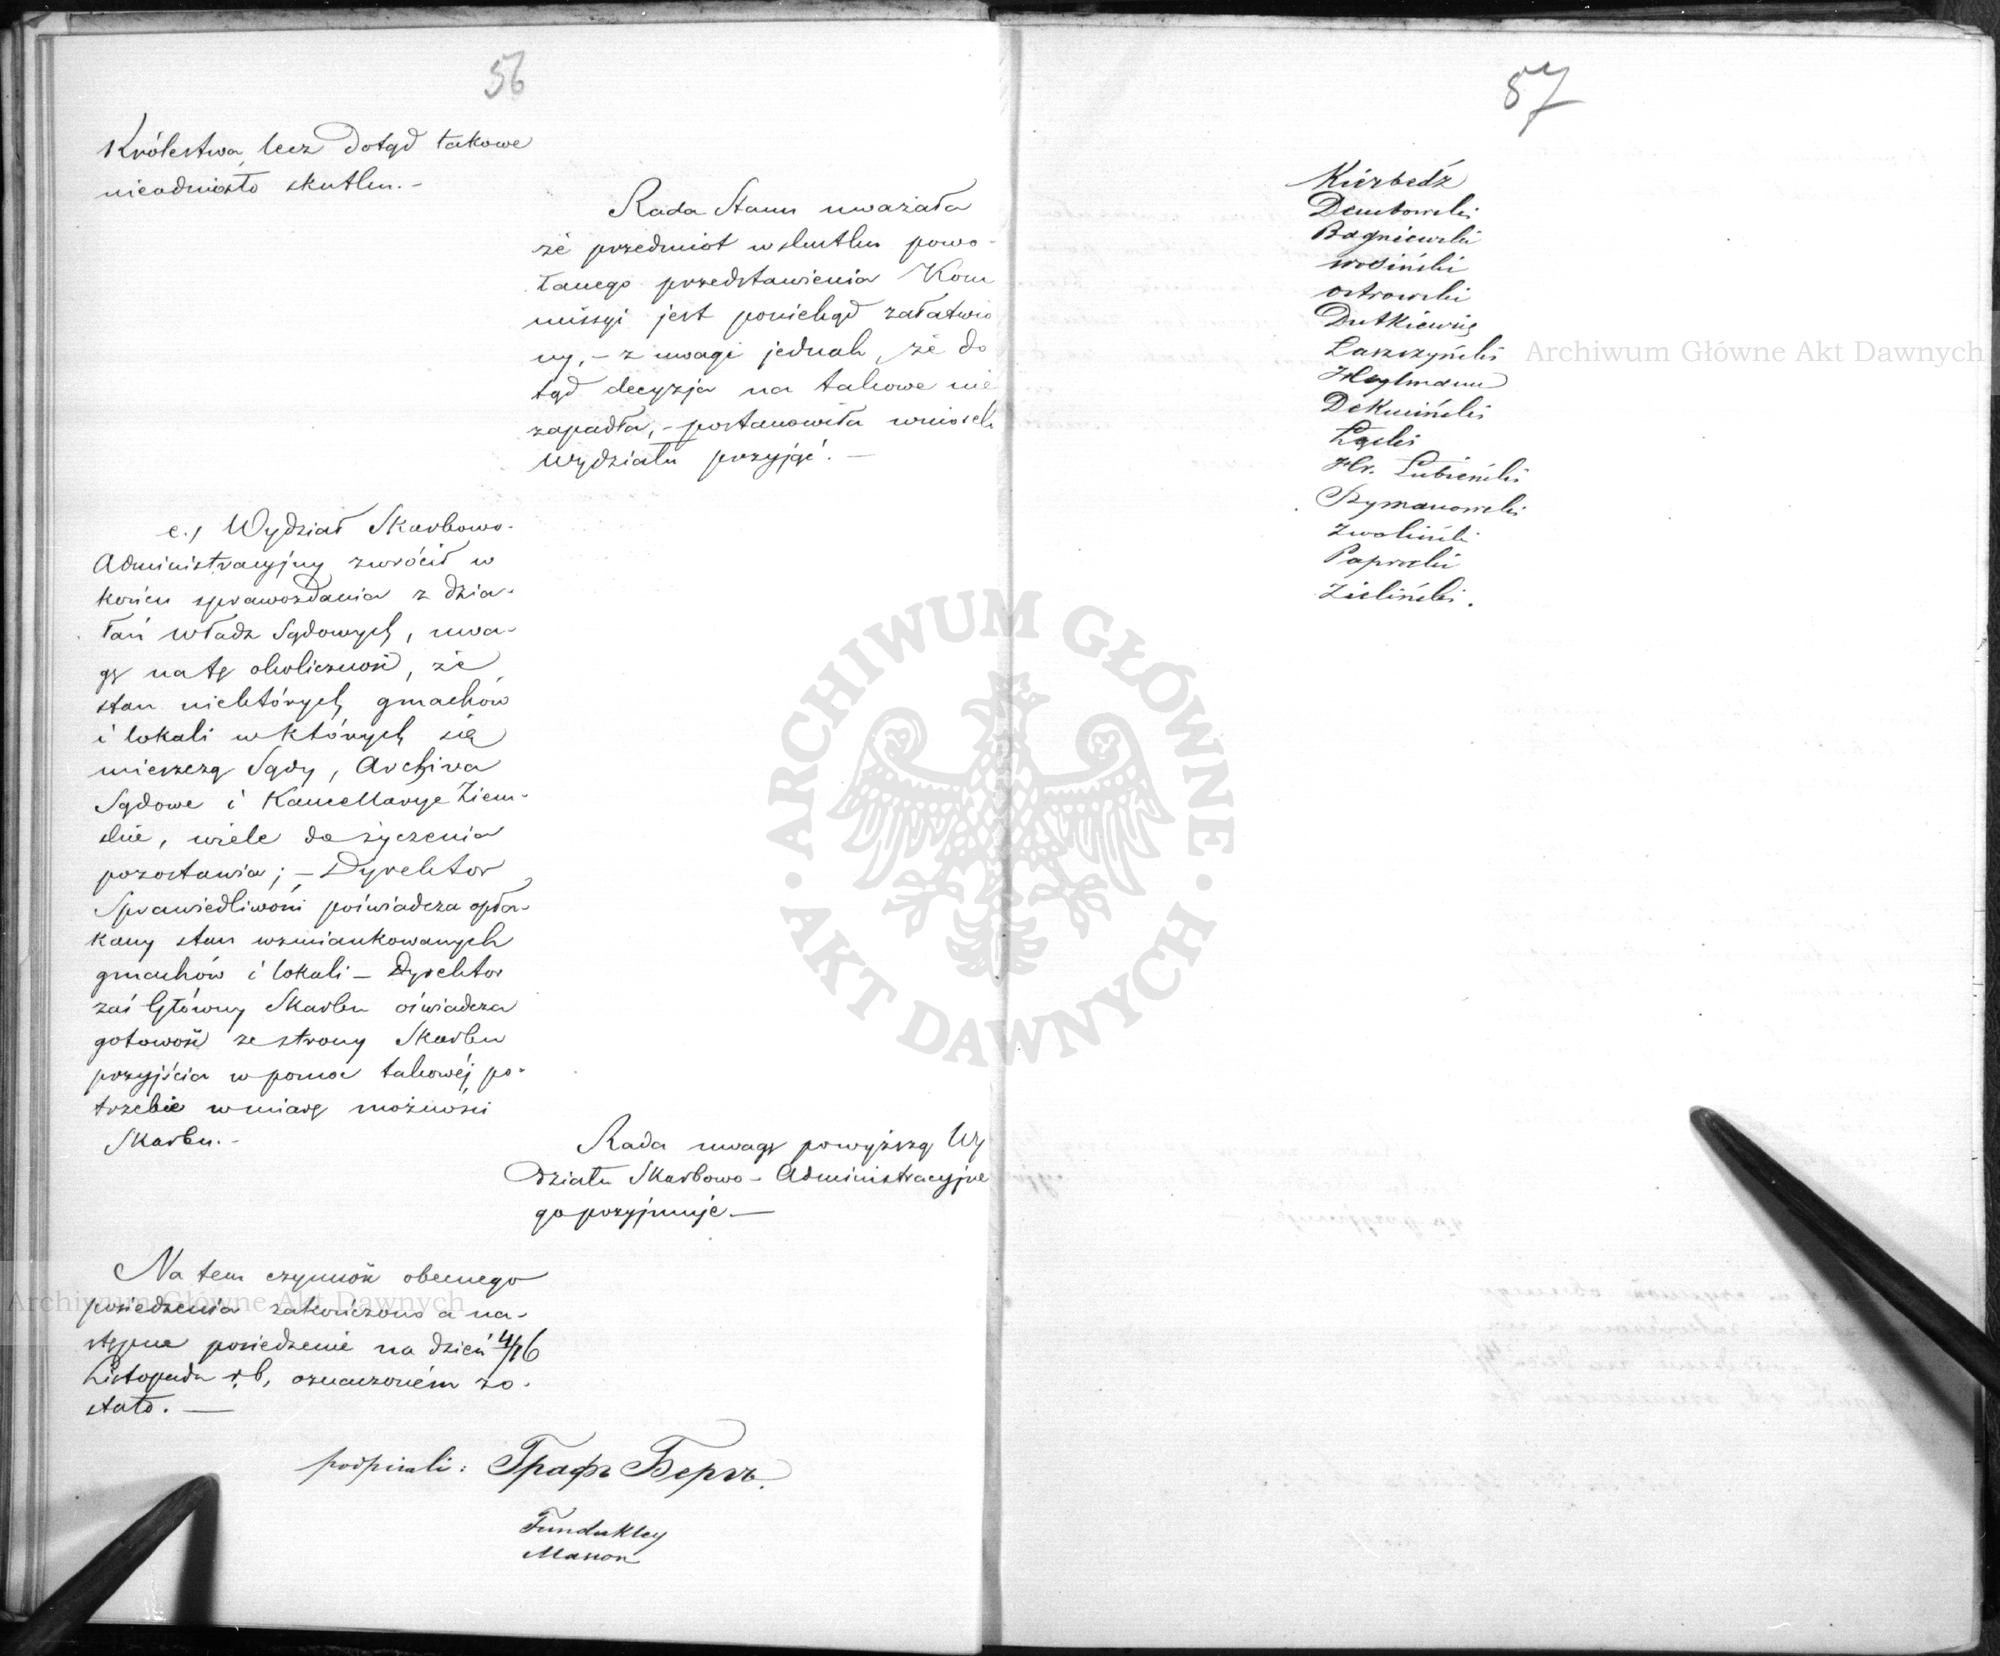 56
Królestwa, lecz dotąd takowe
nieodniosło skutku. -
Rada Stanu uważała
że przedmiot w skutku powo-
łanego przedstawienia Kom
missyi jest poniekąd załatwio
ny, - z uwagi jednak, że do
tąd decyzja na takowe nie
zapadła, - postanowiła wniosek
Wydziału przyjąć. -
e.) Wydział Skarbowo-
Administracyjny zwrócił w
końcu sprawozdania z dzia-
łań władz Sądowych, uwa-
gę na tę okoliczność, że
stan niektórych gmachów
i lokali w których się
mieszczą Sądy, Archiva
Sądowe i Kancellarye Ziem-
skie, wiele do życzenia
pozostawia; - Dyrektor
Sprawiedliwości poświadcza opła-
kany stan wzmiankowanych
gmachów i lokali - Dyrektor
zaś Główny Skarbu oświadcza
gotowość ze strony Skarbu
przyjścia w pomoc takowéj po-
trzebie w miarę możności
Skarbu. -
Rada uwagę powyższą Wy
działu Skarbowo - Administracyjne
go przyjmuje. -
Na tem czynność obecnego
posiedzenia zakończono a na-
stępne posiedzenie na dzień 4/16
Listopada r.b. oznaczoném zo-
stało. -
podpisali: Графъ Бергъ.
Fundukley
Masson
57
Kiérbedź
Dembowski
Bagniewski
Wosiński
Ostrowski
Dutkiewicz
Łaszczyński
Heylmann
Dekuciński
Łęski
Hr. Łubieński
Szymanowski
Zwoliński
Paprocki
Zieliński.
Archiwum Główne Akt Dawnych
Archiwum Główne Akt Dawnych
ARCHIWUM GŁÓWNE
AKT DAWNYCH